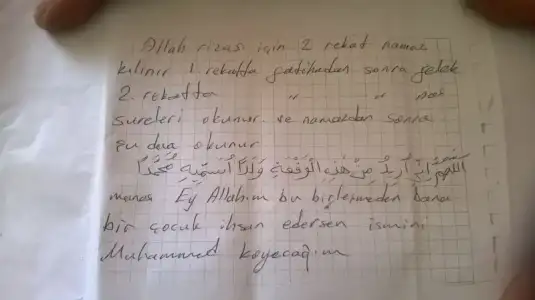 Allah rızası için 2 rekat namaz
kılınır 1. rekatta fatihadan sonra felak
2. rekatta " " nas
sureleri okunur. ve namazdan sonra
şu dua okunur
اللهم اني أريد من هذه الوقفة ولدا أسميه محمدا
manası Ey Allahım bu birleşmeden bana
bir çocuk ihsan edersen ismini
Muhammed koyacağım